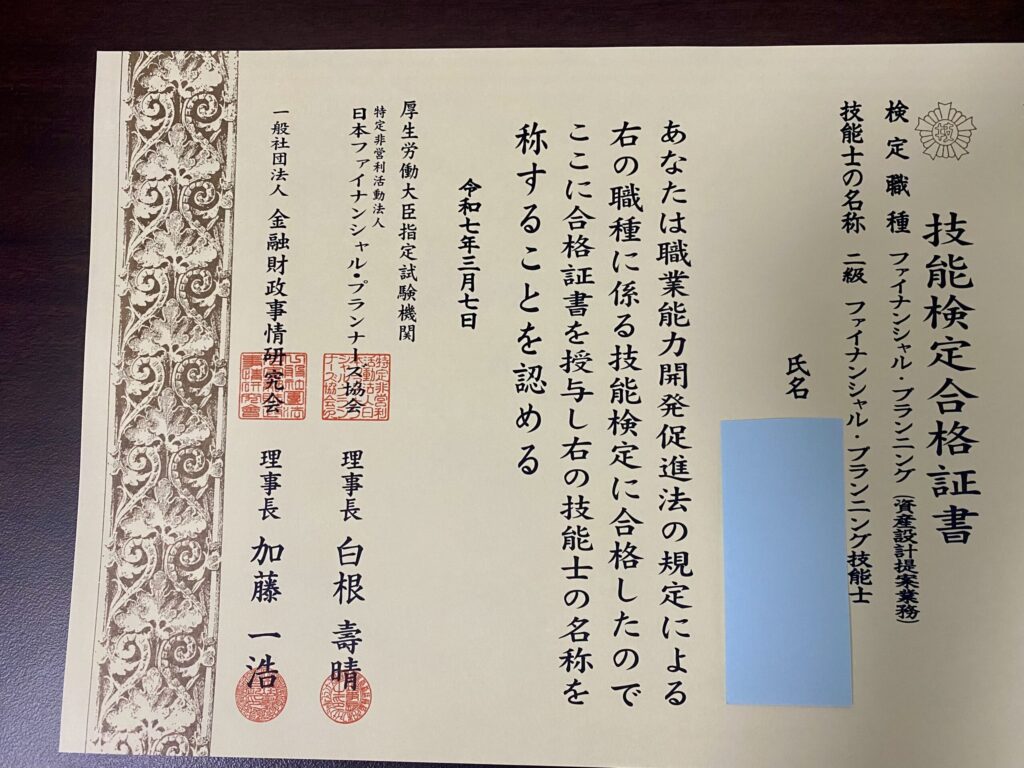 技能検定合格証書
検定職種 ファイナンシャル・プランニング(資産設計提案業務)
技能士の名称 二級 ファイナンシャル・プランニング技能士
氏名
あなたは職業能力開発促進法の規定による
右の職種に係る技能検定に合格したので
ここに合格証書を授与し右の技能士の名称を
称することを認める
令和七年三月七日
厚生労働大臣指定試験機関
特定非営利活動法人
日本ファイナンシャル・プランナーズ協会 理事長 白根壽晴
一般社団法人 金融財政事情研究会 理事長 加藤一浩